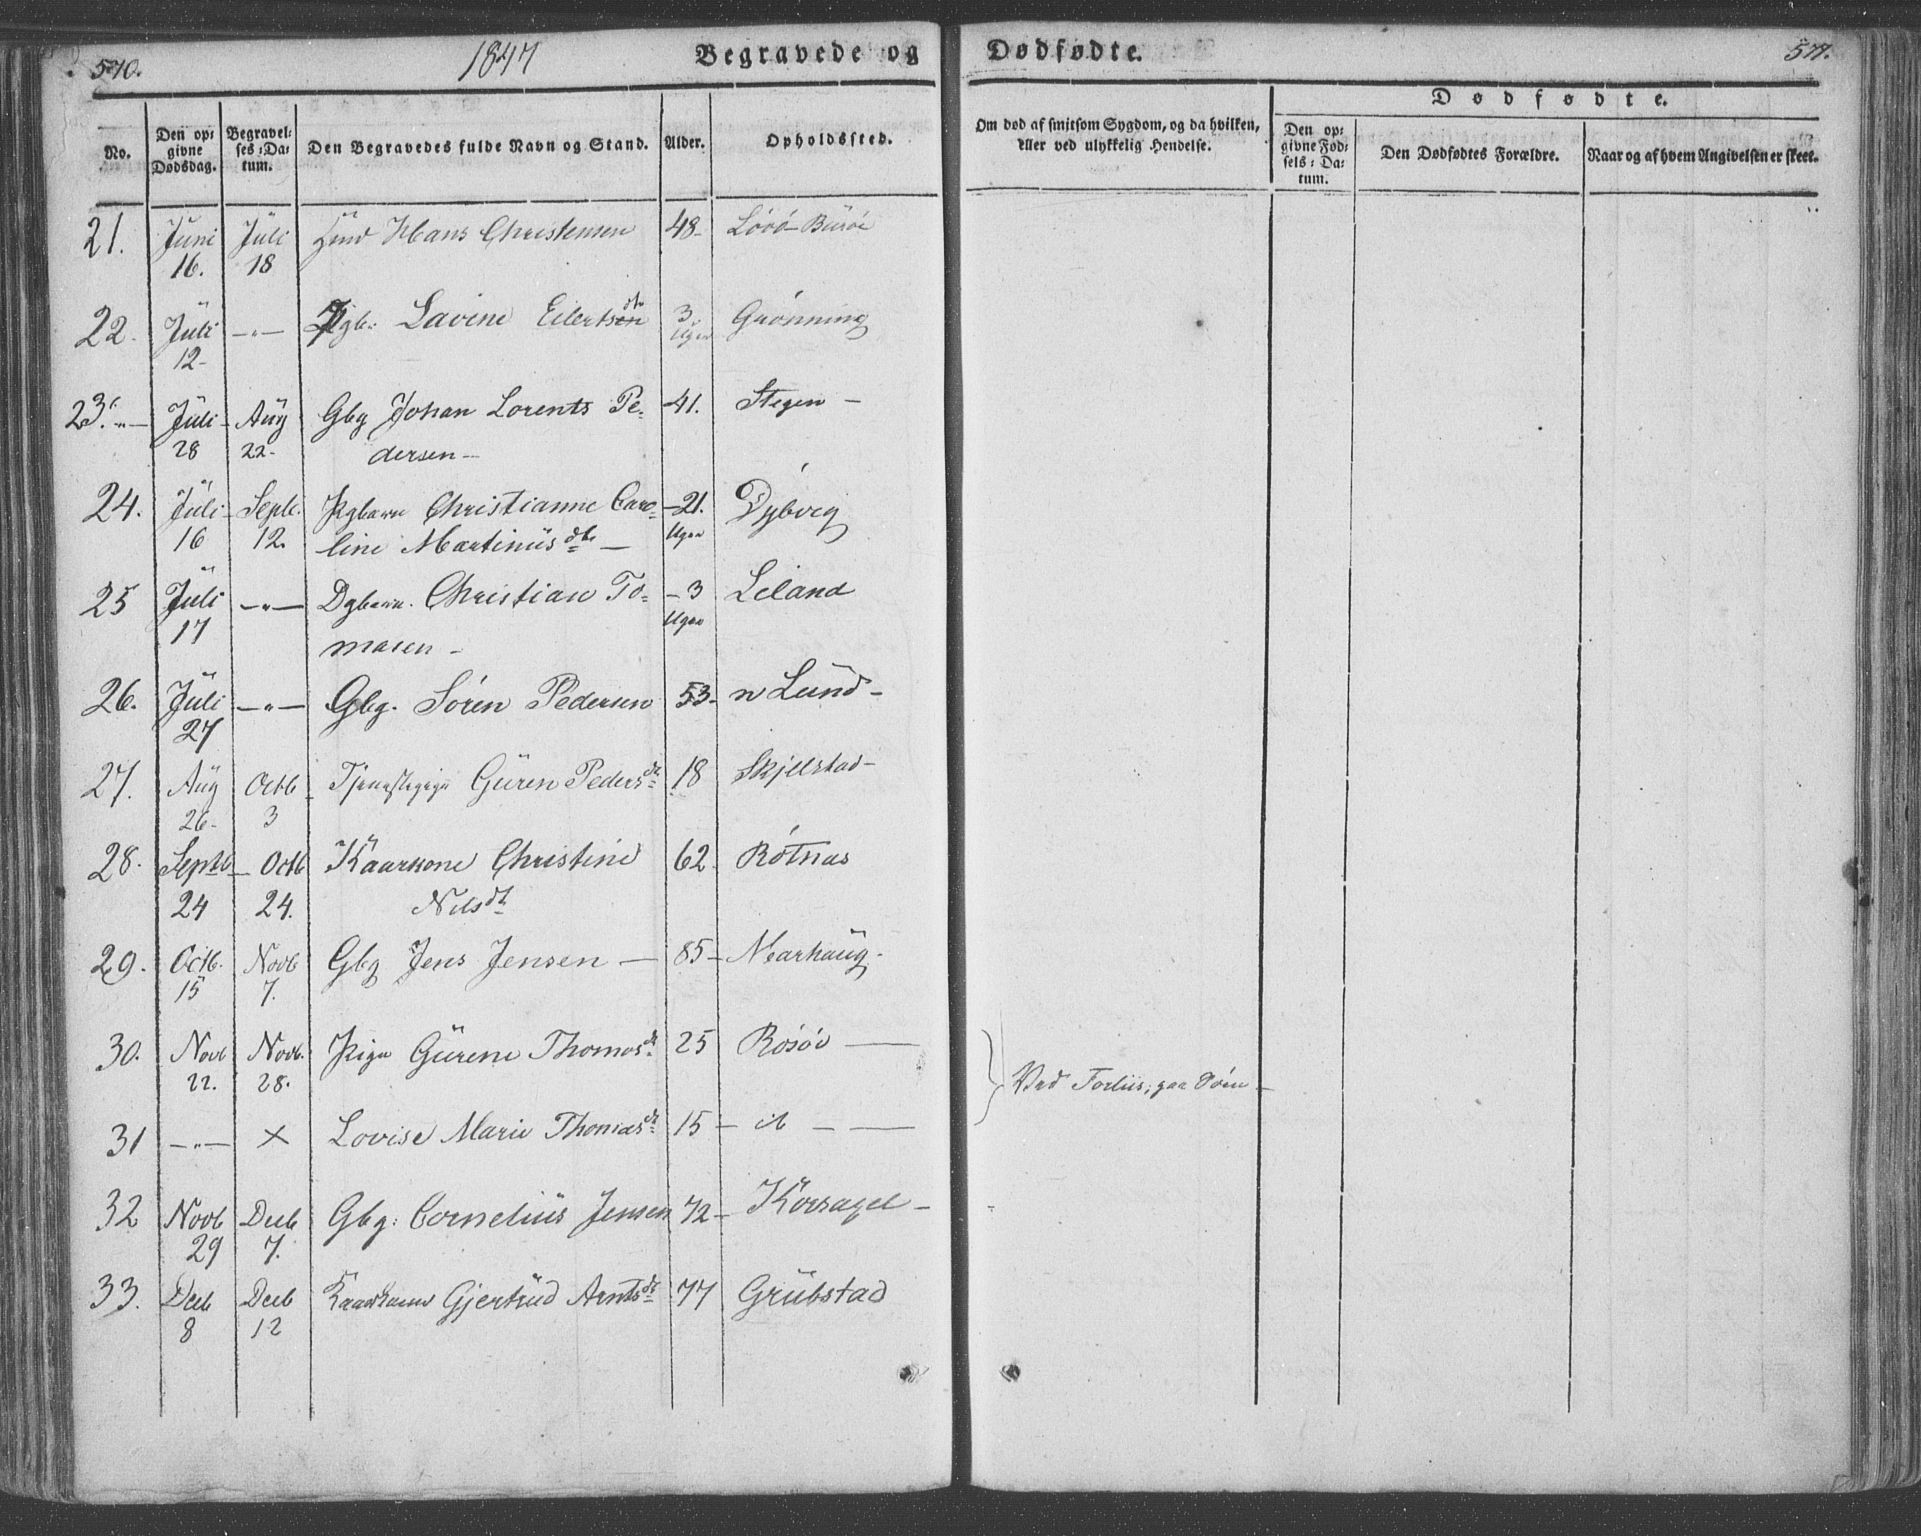 570. 1847 Begravede og Dødfødte. 571.
No. Den opgivne Dødsdag. Begravelses-Datum. Den Begravedes fulde Navn og Stand. Alder. Opholdssted. Om død af smitsom Sygdom, og da hvilken, eller ved ulykkelig Hendelse. Dødfødte. Den opgivne Fødsels-Datum. Den Dødfødtes Forældre. Naar og af hvem Angivelsen er skeet.
21. Juni Juli Hans Christensen 48- Lövö
16. 18
22. Juli -"- Lavine Eilertsdtr 3 Grönning
12- Uger
23. Juli Aug Gbg Johan Lorents Pe- 41. Stegen -
28 22- dersen -
24. Juli Septb. Pigbarn Christianne Caro- 21. Dybvig
16 12. line Martinusdtr - Uger
25 Juli -"- Dgbarn. Christian To- 3 Leland
17 masen - Uger
26. Juli -"- Gbg. Sören Pedersen 53- n Lund -
27
27. Aug Octb Tjenestepige Guren Pedersdt 18 Skjelstad -
26- 3
28. Septb Octb Kaarkone Christine 62. Rötnas
24 24. Nilsdt
29. Octb. Novb Gbg Jens Jensen - 85- Marhaug.
15 7.
30. Novb Novb. Pige Gurene Thomasdt 25 Rösöe -
22. 28. Ved Forliis paa Söen -
31 -"- × Lovise Marie Thomasdt 15 - it -
32 Novb Decb Gbg: Cornelius Jensen 72- Korsagel -
29 7.
33. Decb Decb Gjertrud Arntsdt 77 Grübstad
8 12